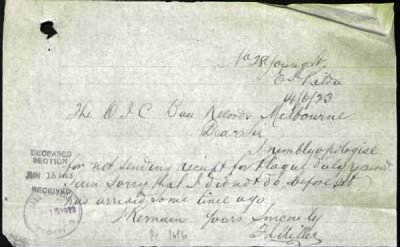 1a 28 Young St
E St Kilda
14/6/23
The O I C Base Records Melbourne
Dear Sir
I humbly apologise
for not sending receipt for Plaque duly received
I am Sorry that I did not do before it
has arrived some time ago
I Remain Yours Sincerely
Miller
DECEASED
SECTION
JUN 16 1923
RECEIVED